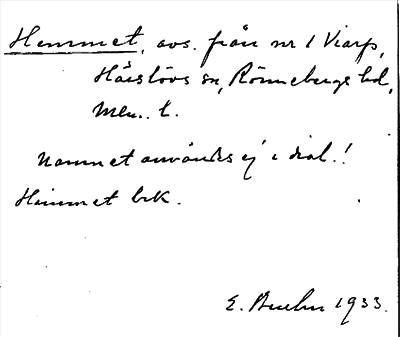 Hemmet, avs. från nr 1 Viarp,
Härslövs sn, Rönnebergs hd,
Mlm. l.
Namnet användes ej i dial.!
Hemmet bek.
E. Bruhn 1933.